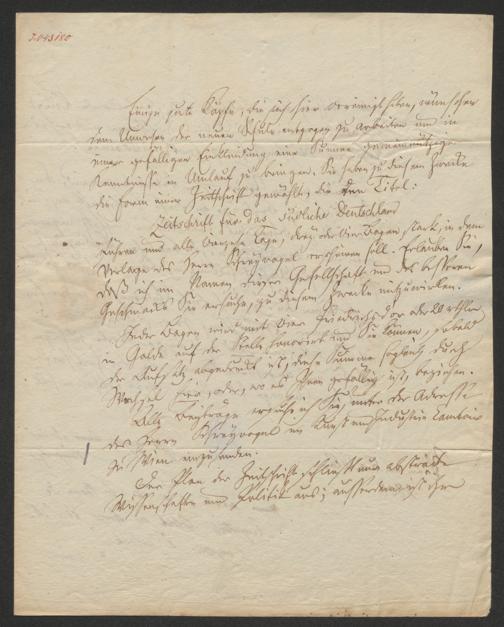 J.093180
Einige gute Köpfe, die sich hier vereinigt haben, wünschen
dem Unwesen der neuen Schule entgegen zu arbeiten und in
einer gefälligen Einkleidung eine Summe gemeinnütziger
Kenntnisse in Umlauf zu bringen. Sie haben zu diesem Zwecke
die Form einer Zeitschrift gewählt, die den Titel:
Zeitschrift für das südliche Deutschland
führen und alle Tage, drey oder vier Bogen stark, in dem
Verlage des Herrn Schreyvogel erscheinen soll. Erlauben Sie,
daß ich im Namen dieser Gesellschaft und des besseren
Geschmacks Sie ersuche, zu diesem Zwecke mitzuwirken.
Jeder Bogen wird mit vier Friedrichsd'or oder 20 rthlrn
in Golde auf der Stelle honorirt und Sie können, sobald
der Aufsatz abgedruckt ist, diese Summe sogleich durch
Wechsel hier, oder, wo es Ihnen gefällig ist, beziehen.
Alle Beiträge ersuche ich Sie, unter der Adresse
des Herrn Schreyvogel im Kunst und Industrie Comtoir
zu Wien einzusenden.
Der Plan der Zeitschrift schließt nur abstracte
Wissenschaften und Politik aus; ausserdem ist ihr